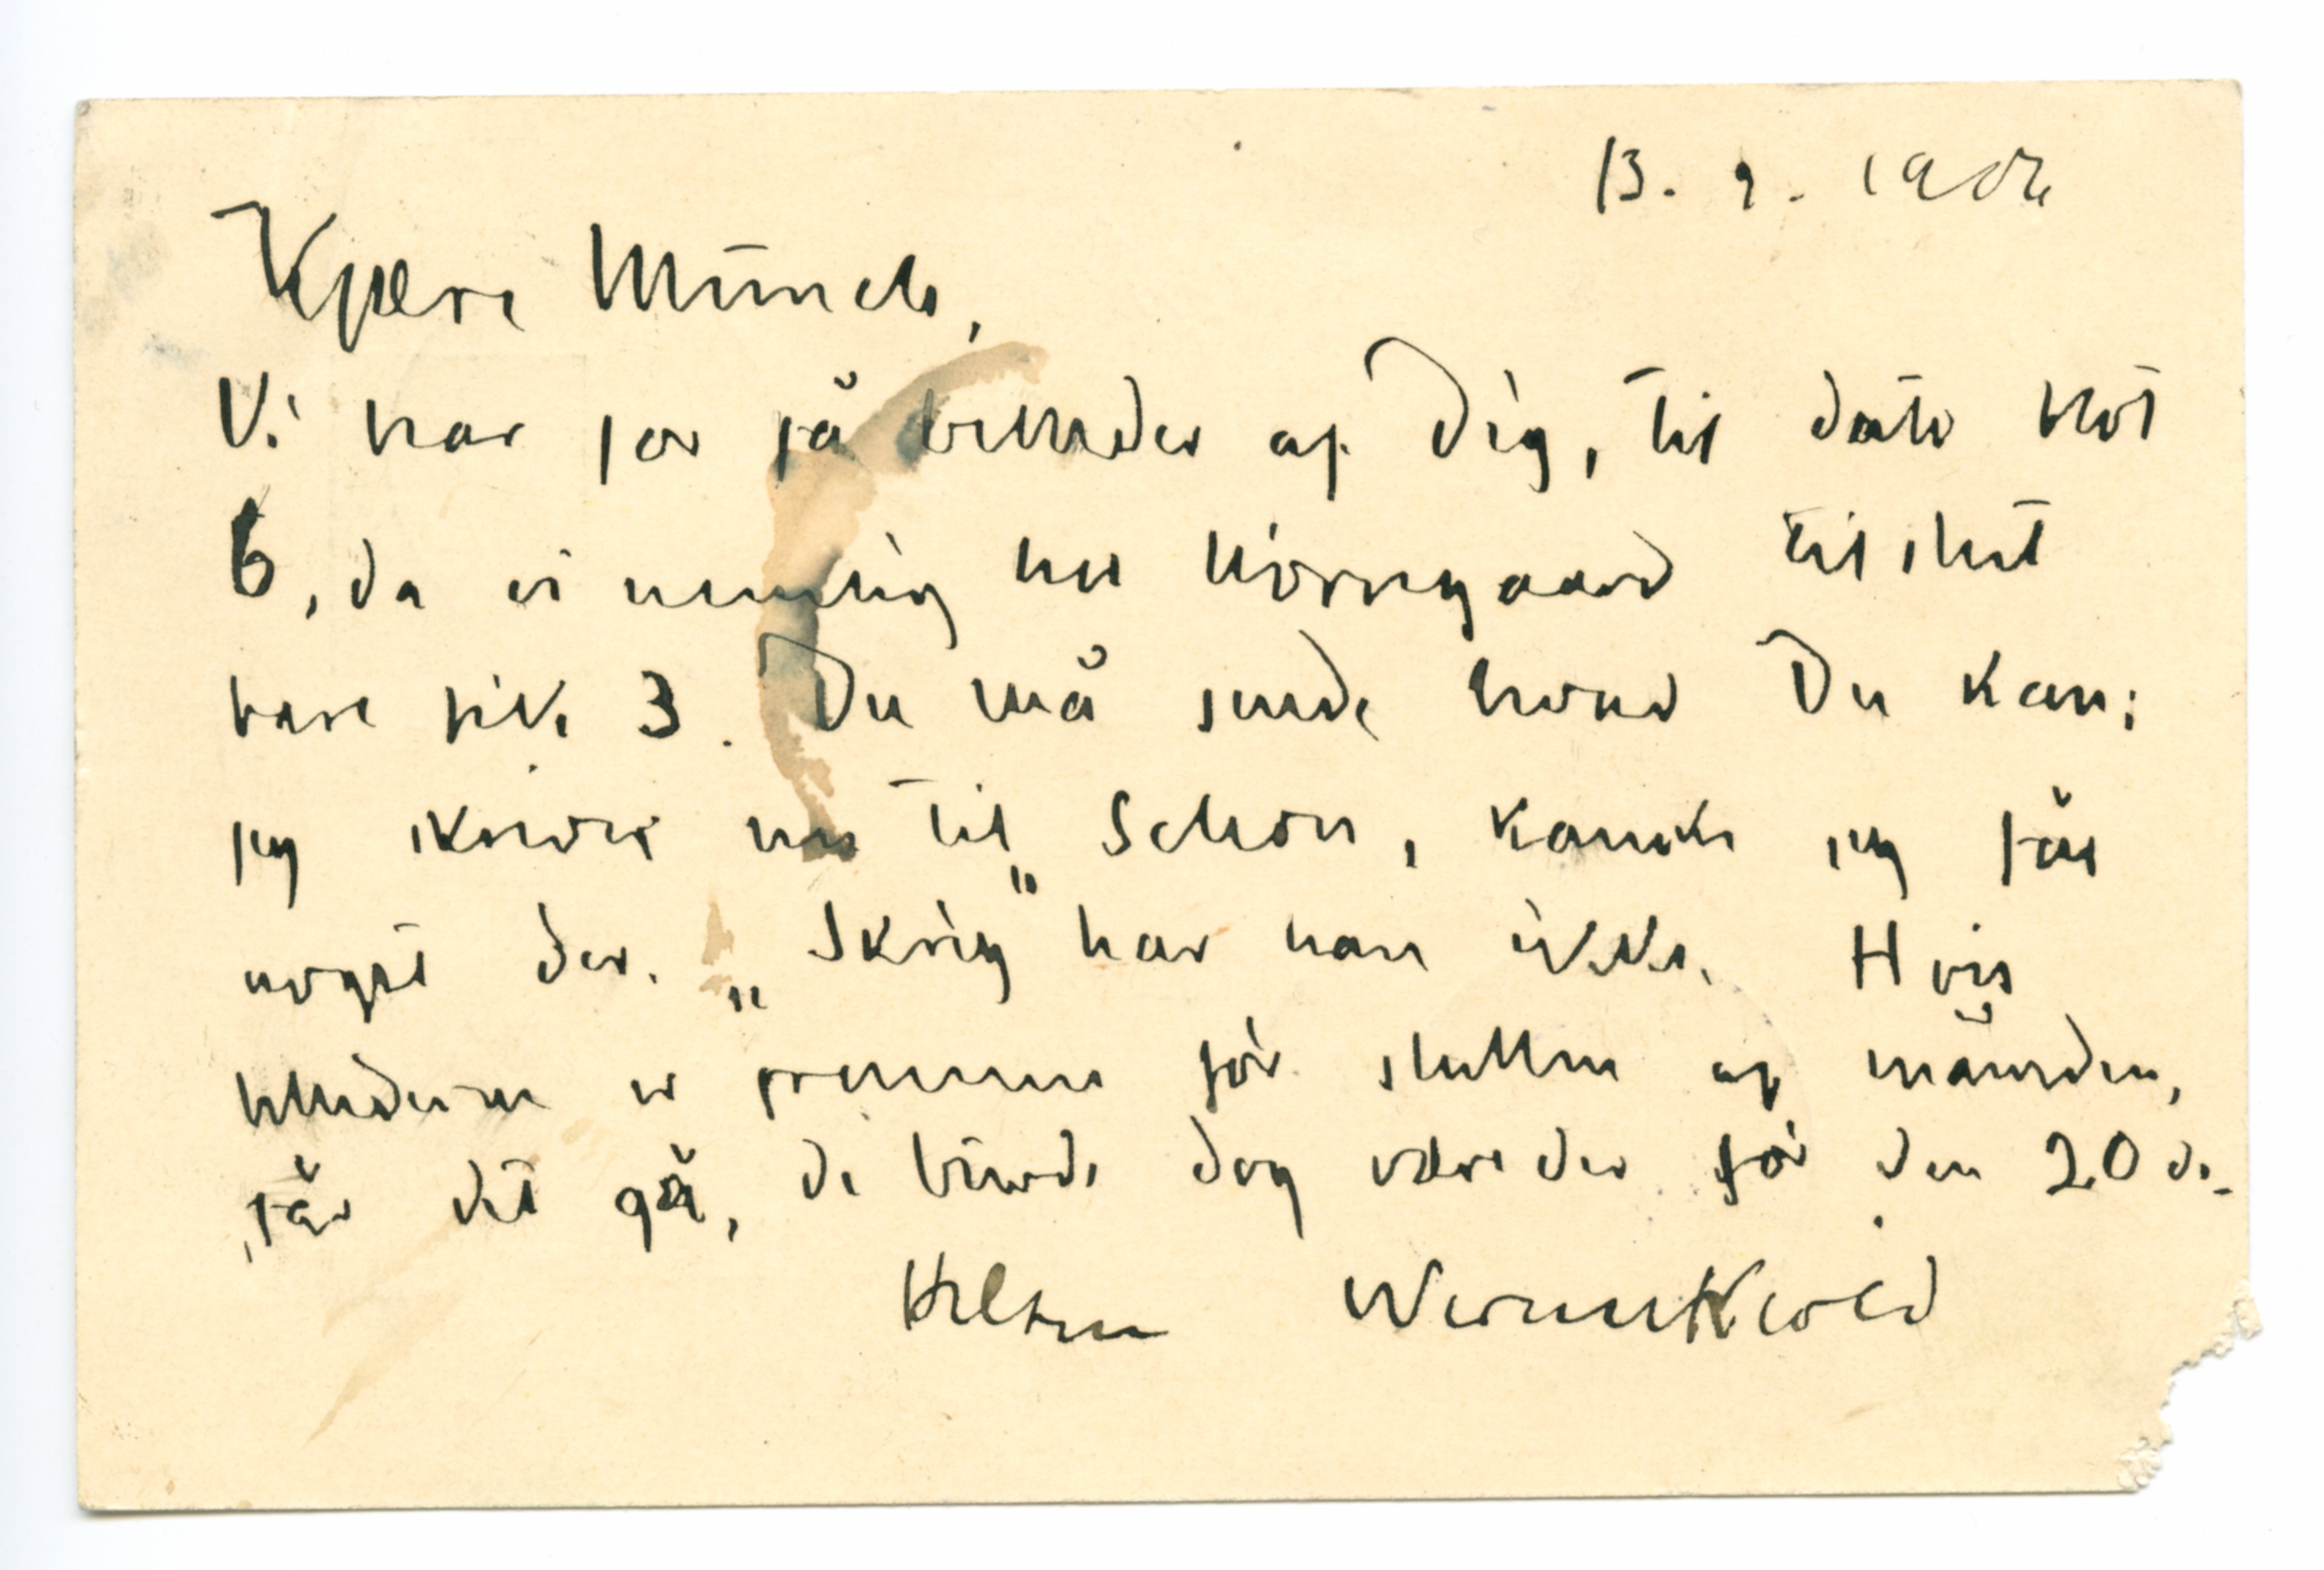 13. 9. 1904
Kjære Münch,
Vi har for få billeder af Dig, til dato blot
6, da vi nemlig hos Hörrngaard tilslut
bare fik 3. Du må sende hvad Du kan;
jeg skriver nu til Schou, kanske jeg får
noget der. „Skrig" har han ikke. Hvis
billederne er fremme för slutten af måneden,
får det gå, de burde dog være der för den 20de.
Hilsen Werenskiold